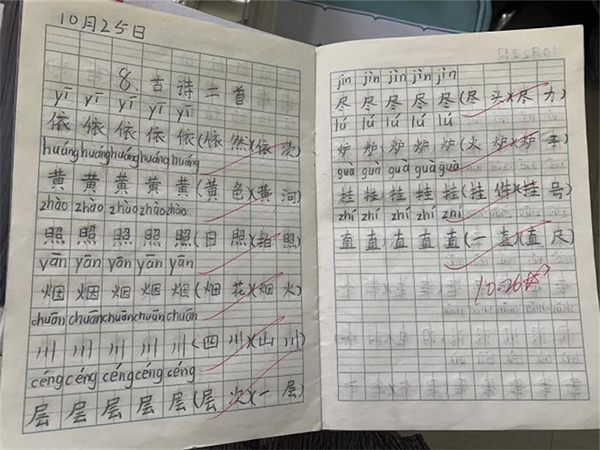 10月25日
8. 古诗二首
yī yī yī yī yī
依 依 依 依 依(依然)(依次)
huáng huáng huáng huáng huáng
黄 黄 黄 黄 黄(黄色)(黄河)
zhào zhào zhào zhào zhào
照 照 照 照 照(日照)(拍照)
yān yān yān yān yān
烟 烟 烟 烟 烟(烟花)(烟火)
chuān chuān chuān chuān chuān
川 川 川 川 川(四川)(山川)
céng céng céng céng céng
层 层 层 层 层(层次)(一层)
jìn jìn jìn jìn jìn
尽 尽 尽 尽 尽(尽头)(尽力)
lú lú lú lú lú
炉 炉 炉 炉 炉(火炉)(炉子)
guà guà guà guà guà
挂 挂 挂 挂 挂(挂件)(挂号)
zhí zhí zhí zhí zhí
直 直 直 直 直(一直)(直尺)
10.26